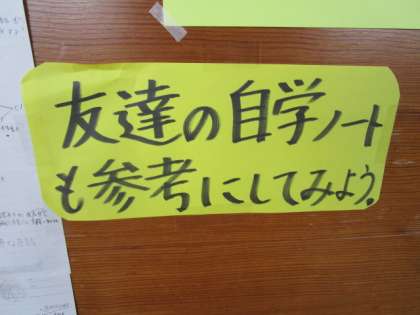 友達の自学ノート
も参考にしてみよう。